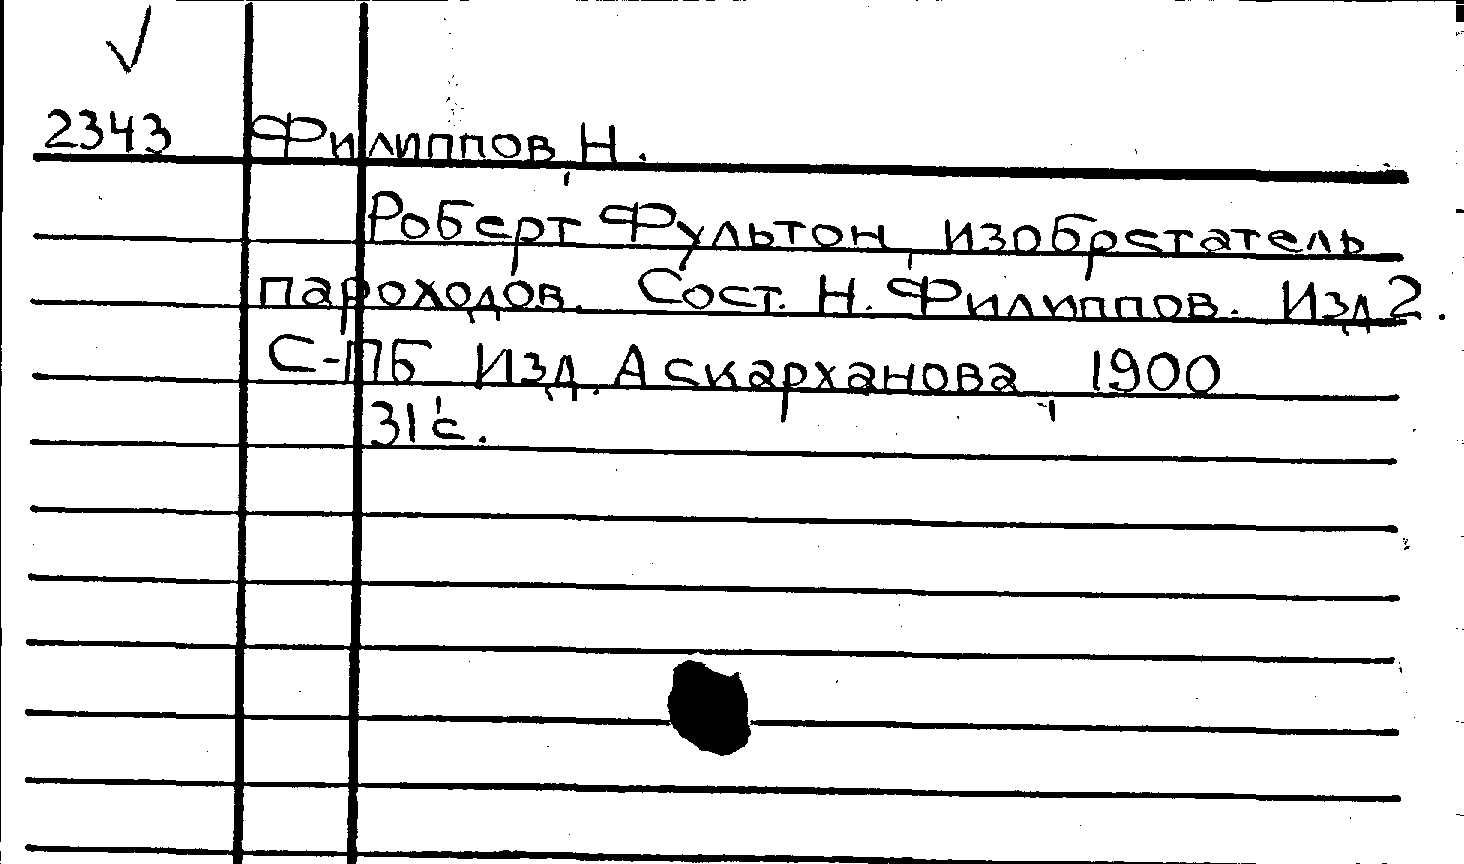 2343 Филиппов, Н.
Роберт Фультон, изобретатель
пароходов. Сост. Н. Филиппов. Изд 2.
С-ПБ Изд. Аскарханова, 1900
31 с.